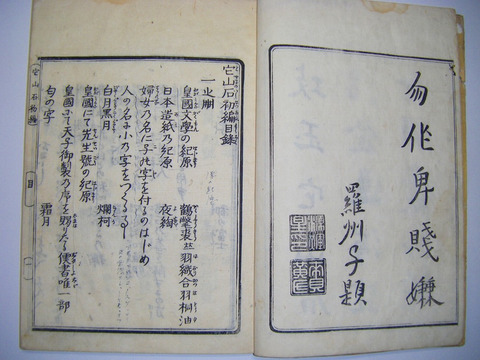 勿作卑賤嫌
羅州子題
它山石初編目録
一之冊
皇國文學の紀原 鶴氅裘並羽織合羽桐油
日本造紙乃紀原
婦女乃名に子此字を付るのはじめ
人の名に小乃字をつくる事
白月黒月 爛柯
皇國にて先生號の紀原
皇國にて天子御製乃序を賜りたる儒書唯一部
旬の字 霜月
它山石初編 目 一